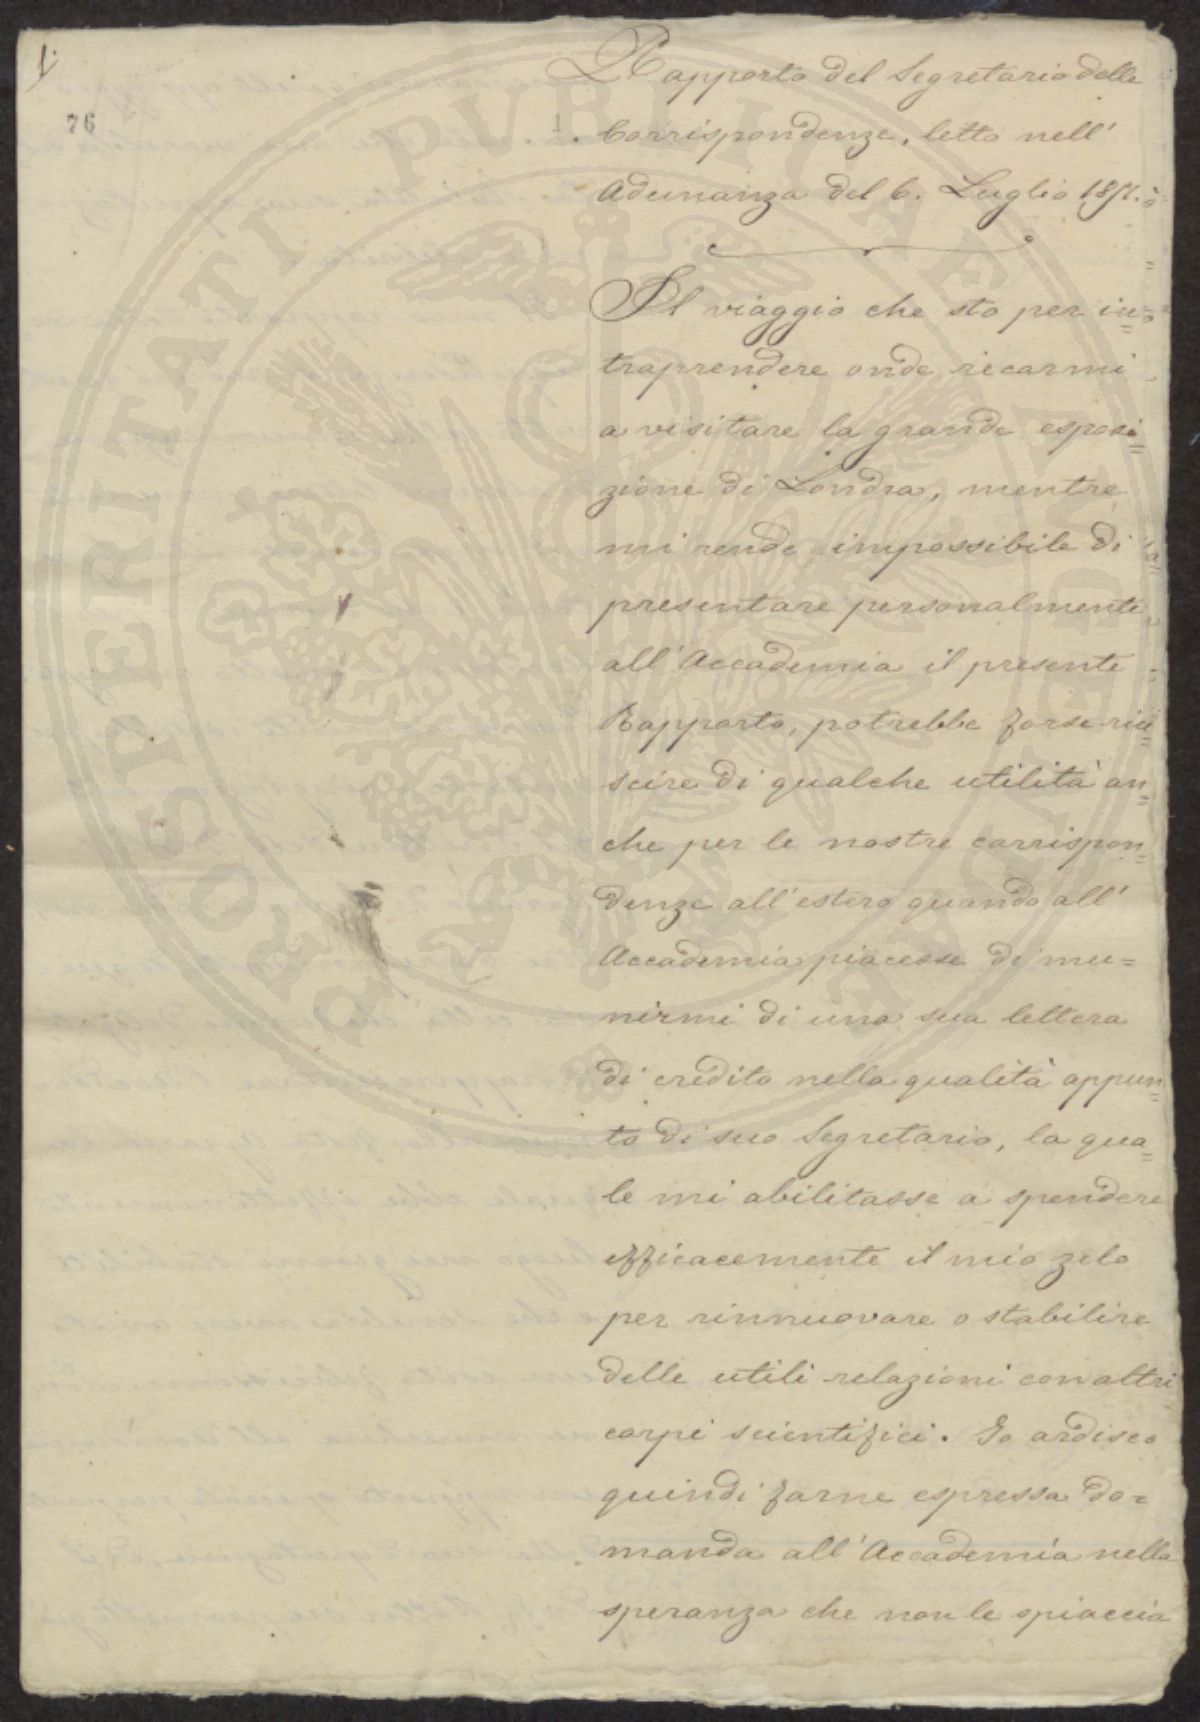 1.
76
Rapporto del Segretario delle
Corrispondenze, letto nell'
Adunanza del 6. Luglio 1851.
Il viaggio che sto per in=
traprendere onde recarmi
a visitare la grande esposi=
zione di Londra, mentre
mi rende impossibile di
presentare personalmente
all'Accademia il presente
Rapporto, potrebbe forse riu=
scire di qualche utilità an=
che per le nostre corrispon=
denze all'estero quando all'
Accademia piacesse di mu=
nirmi di una sua lettera
di credito nella qualità appun=
to di suo Segretario, la qua=
le mi abilitasse a spendere
efficacemente il mio zelo
per rinnuovare o stabilire
delle utili relazioni con altri
corpi scientifici. Io ardisco
quindi farne espressa do=
manda all'Accademia nella
speranza che non le spiaccia
PROSPERITATI PUBLICAE AUGENDAE